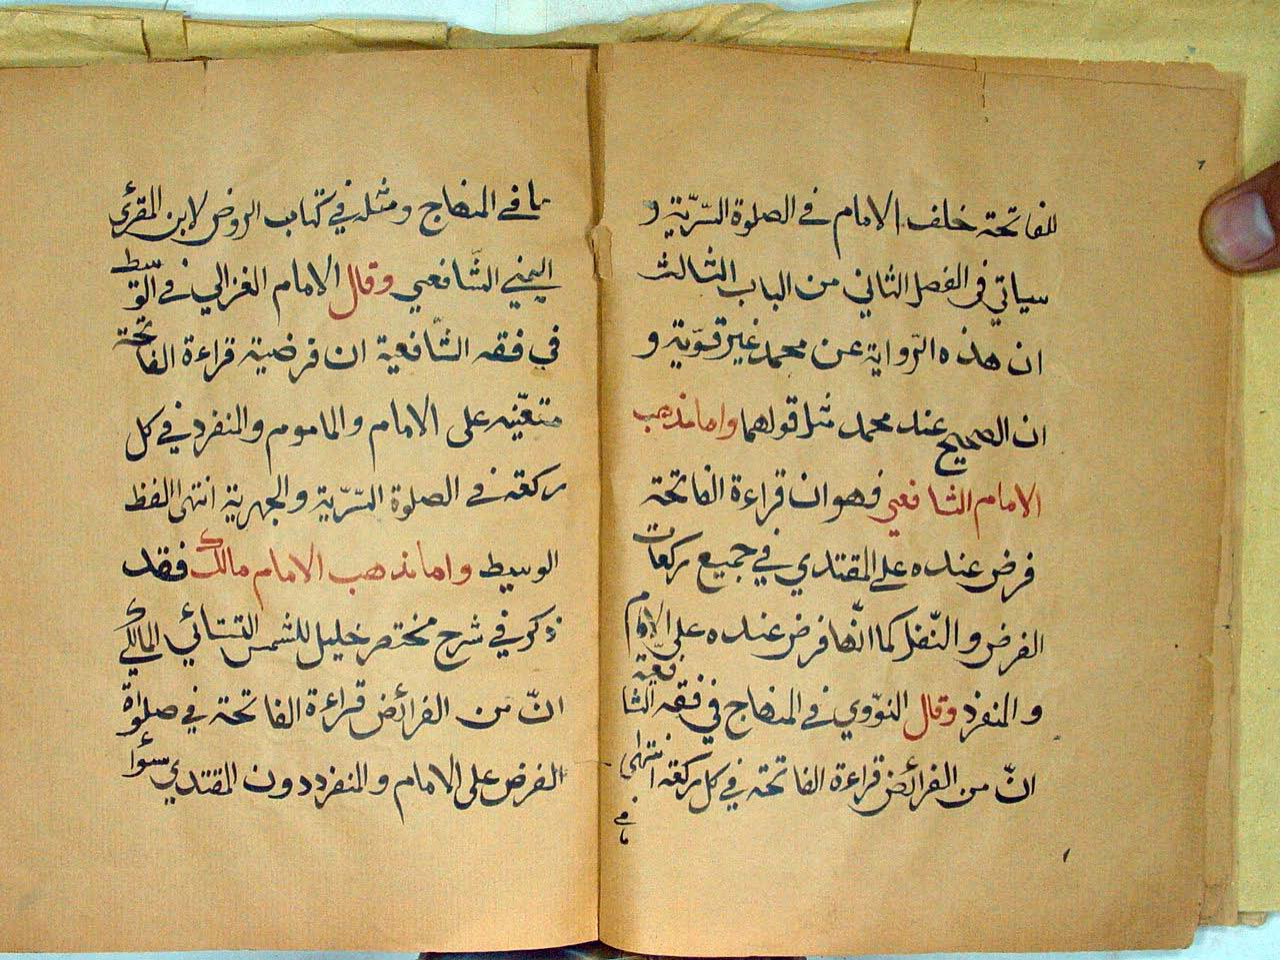 للفاتحة خلف الامام في الصلوة السّرّية و
سياتي في الفصل الثاني من الباب الثالث
ان هذه الرّواية عن محمد غير قوّية و
ان الصحيح عند محمد مثل قولهما واما مذهب
الامام الشافعي فهو ان قراءة الفاتحة
فرض عنده على المقتدي في جميع ركعات
الفرض والنّفل كما انّها فرض عنده على الامام
و المنفرد وقال النوّوي في المنهاج في فقه الشافعيّة
انّ من الفرائض قراءة الفاتحة في كل ركعة انتهى
ما في
ما في المنهاج ومثله في كتاب الروض لابن المقرئ
اليمني الشّافعي وقال الامام الغزالي في الوسيط
في فقه الشّافعية ان فرضية قراءة الفاتحة
متعيّنه على الامام والماموم والمنفرد في كل
ركعة في الصلوة السّرّية والجهرية انتهى الفظ
الوسيط واما مذهب الامام مالك فقد
ذكر في شرح مختصر خليل للشمس التتائي المالكي
انّ من الفرائض قراءة الفاتحة في صلواة
الفرض على الامام والمنفرد دون المقتدي سوأ